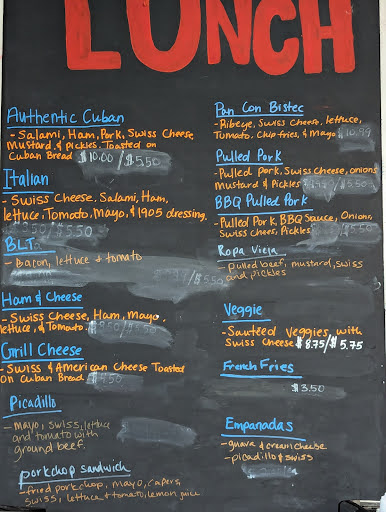 LUNCH
Authentic Cuban
- Salami, Ham, Pork, Swiss Cheese
Mustard, & Pickles. Toasted on
Cuban Bread $10.00/$5.50
Italian
- Swiss Cheese, Salami, Ham,
lettuce, Tomato, Mayo, & 1905 dressing.
/$5.50
BLT
- Bacon, lettuce & tomato
Ham & Cheese
- Swiss Cheese, Ham, mayo,
lettuce, & Tomato
Grill Cheese
- Swiss & American Cheese Toasted
on Cuban Bread
Picadillo
- mayo, swiss, lettuce
and tomato with
ground beef.
porkchop sandwich
- fried porkchop, mayo, capers,
swiss, lettuce & tomato, lemon juice
Pan Con Bistec
- Ribeye, Swiss Cheese, lettuce,
Tomato, Chip fries, & Mayo $10.99
Pulled Pork
- Pulled pork, Swiss Cheese, onions
Mustard & Pickles
BBQ Pulled Pork
- Pulled Pork, BBQ Sauce, Onions,
Swiss Chees, Pickles
Ropa Vieja
- pulled beef, mustard, swiss
and pickles
Veggie
- Sautéed veggies, with
Swiss Cheese $8.75/$5.75
French Fries
$3.50
Empanadas
- guava & cream cheese
- picadillo & swiss